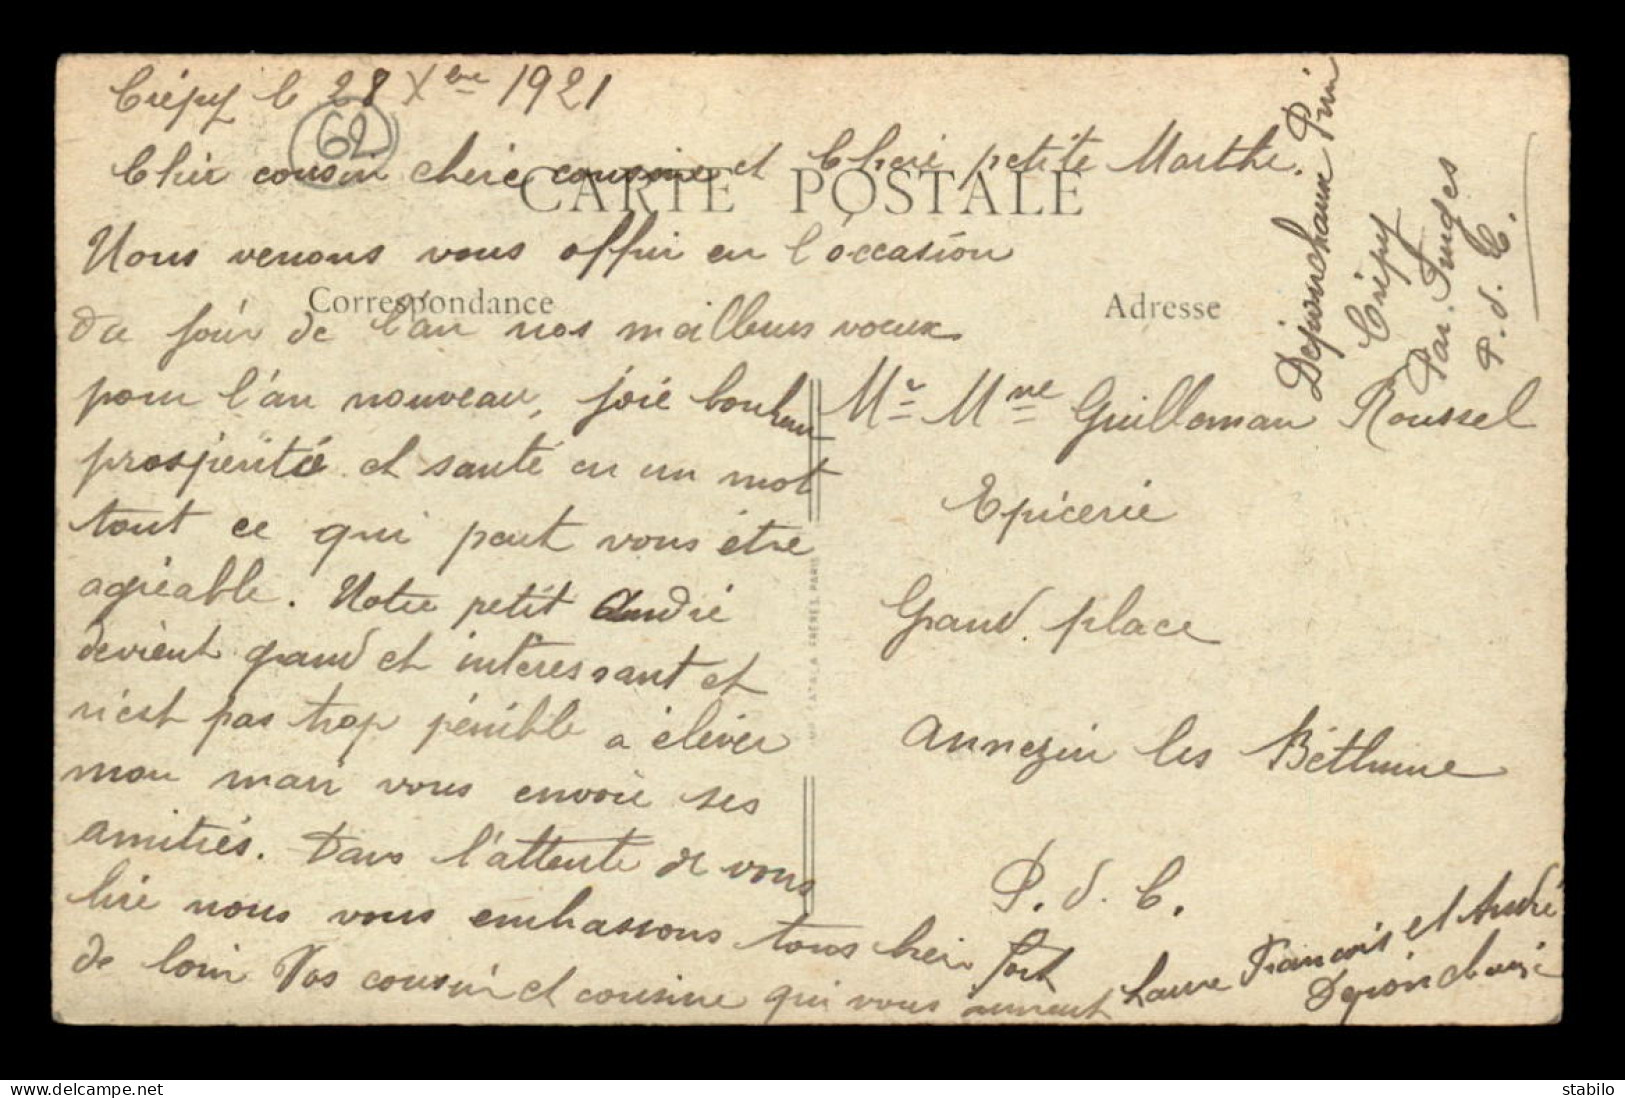 Crépy le 28 Xbre 1921
62
Cher cousin chère cousine et Chère petite Marthe.
CARTE POSTALE
Nous venons vous offrir en l'occasion
Correspondance
du jour de l'an nos meilleurs voeux
pour l'an nouveau, joie bonheur
prospérité et santé en un mot
tout ce qui peut vous être
agréable. Notre petit André
devient grand et intéressant et
n'est pas trop pénible à élever
mon mari vous envoie ses
amitiés. Dans l'attente de vous
lire nous vous embrassons tous bien fort
de loin Vos cousin et cousine qui vous aiment
Laure François et André
Adresse
Mr Mme Guilleman Roussel
Epicerie
Grand place
Annezin les Béthune
P. d. C.
Crépy
Par. Fruges
P. d. C.
IMP. CATALA FRÈRES, PARIS
delcampe.net
stabilo